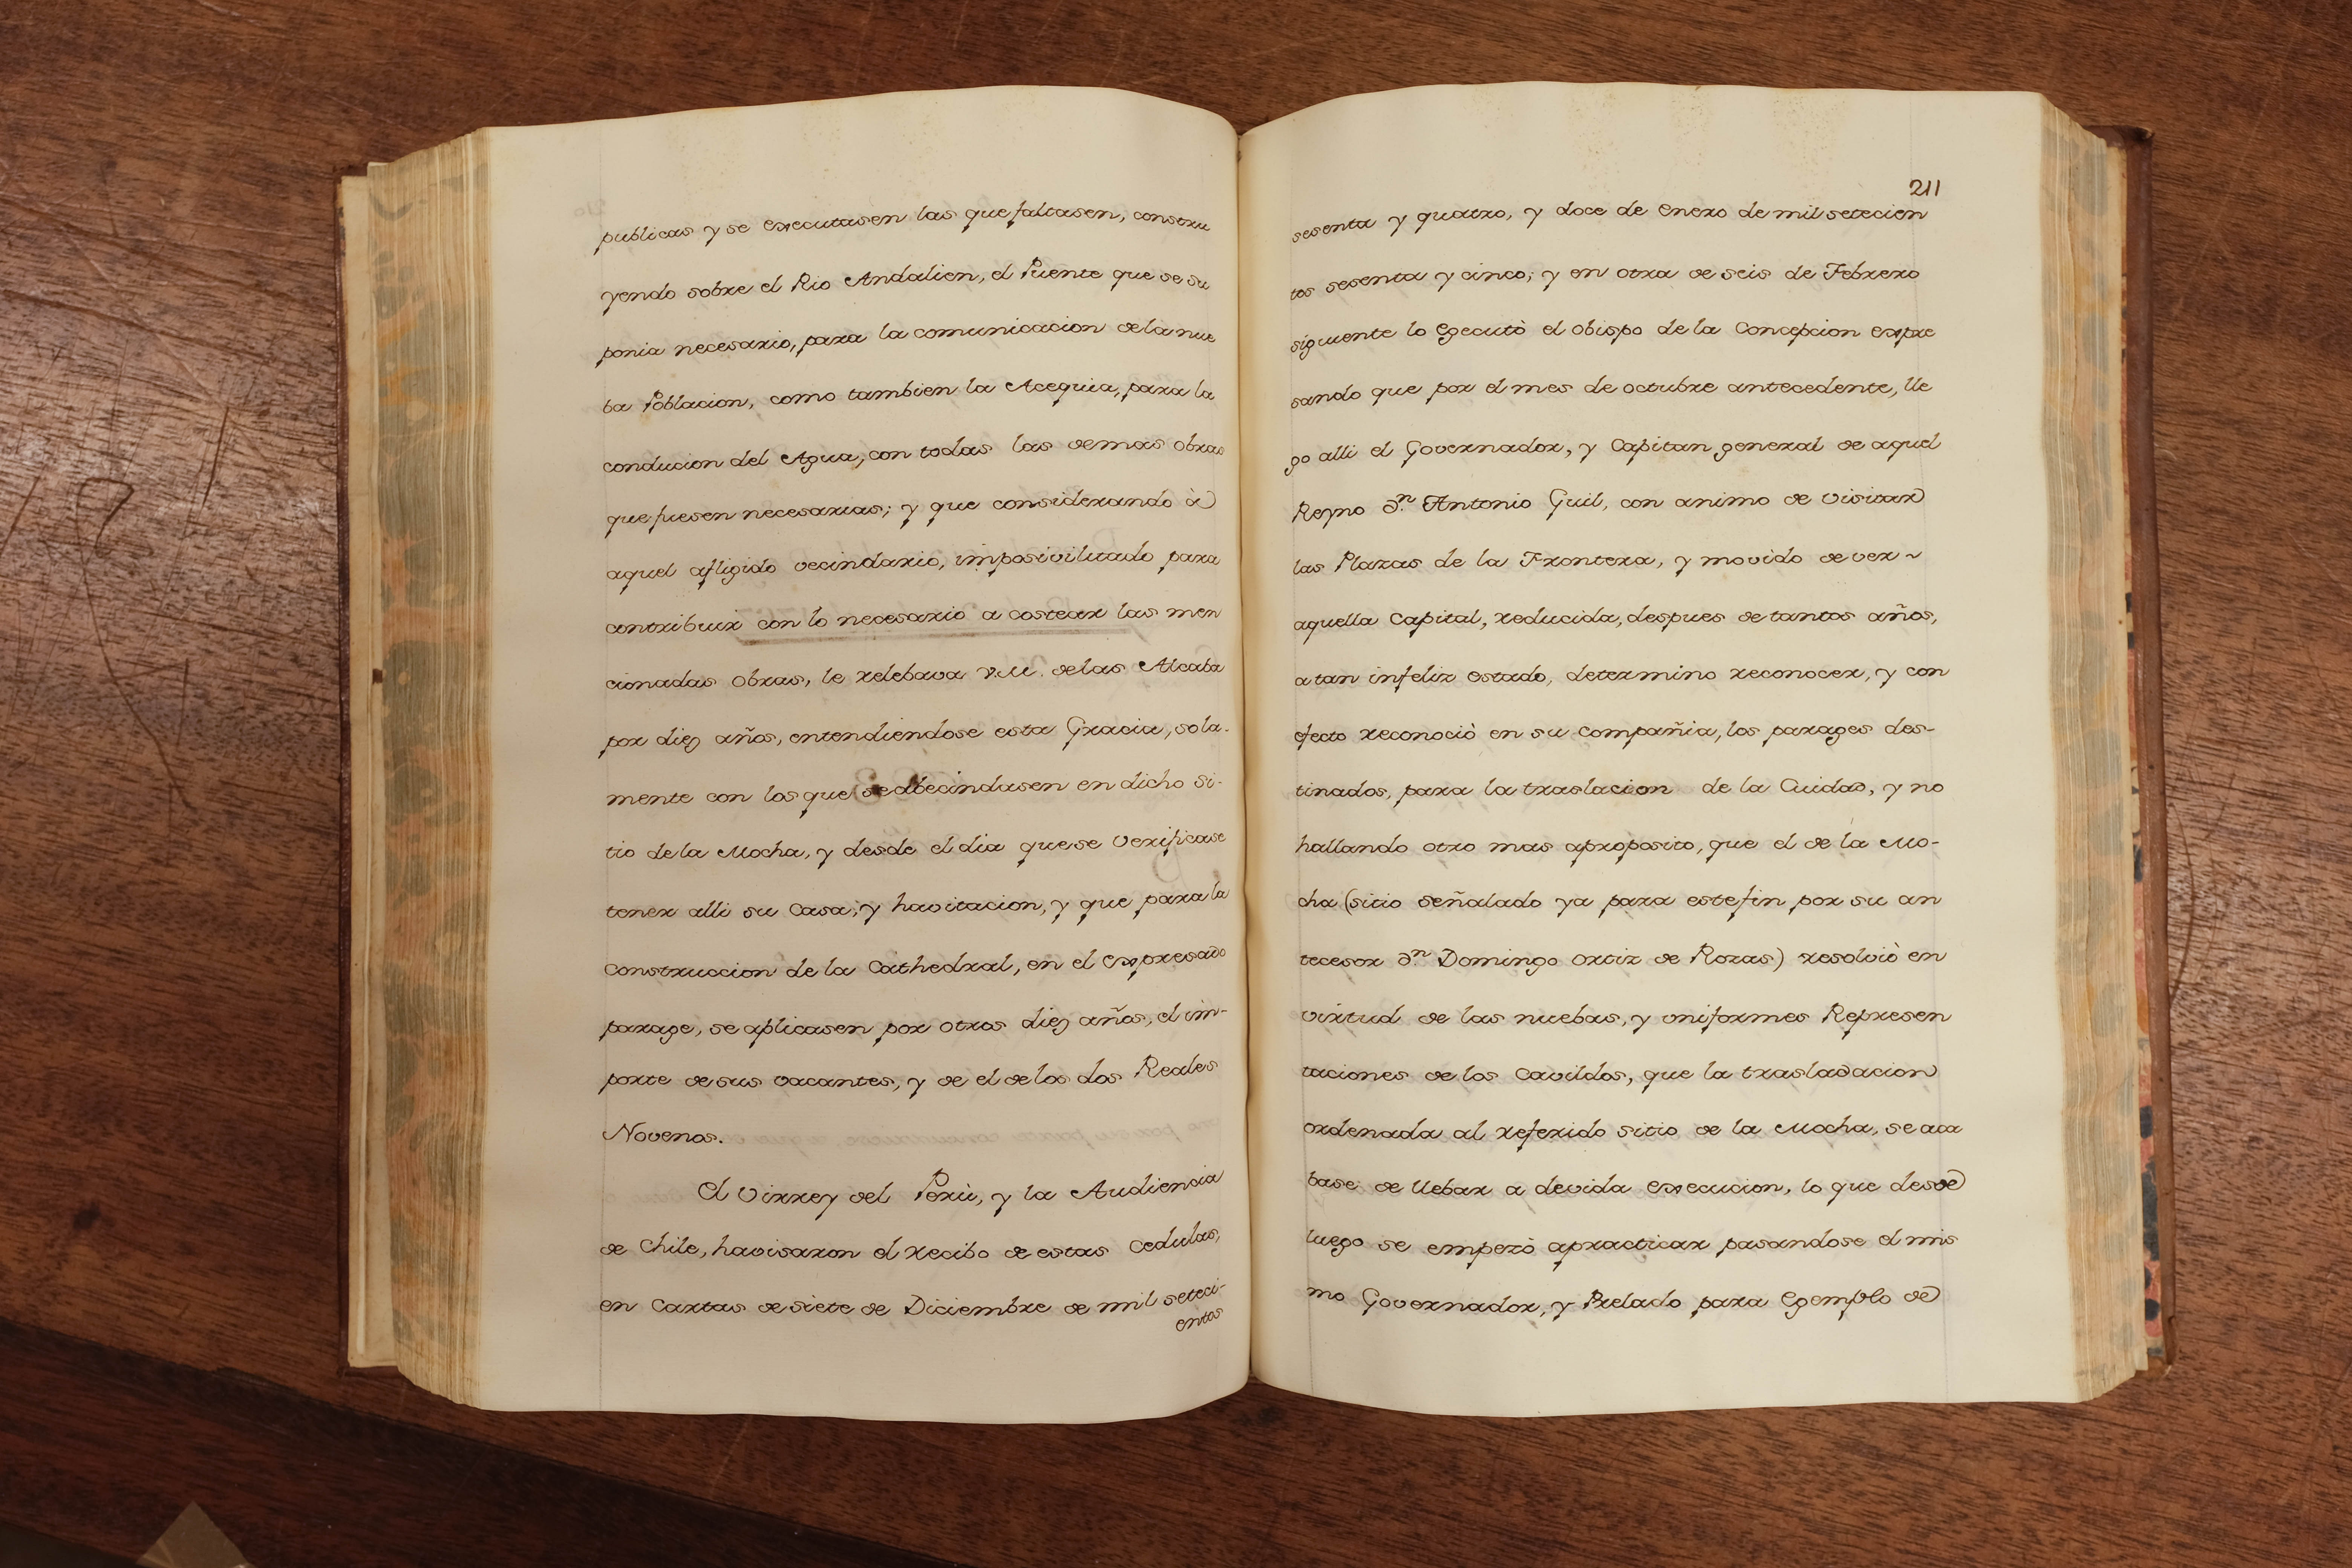 publicas y se executasen las que faltasen, constru
yendo sobre el Rio Andalien, el Puente que se su
ponia necesario, para la comunicacion de la nue
ba Poblacion, como tambien la Acequia, para la
conducion del Agua, con todas las demas obras
que fuesen necesarias; y que considerando à
aquel afligido vecindario, imposivilitado para
contribuir con lo necesario a costear las men
cionadas obras, le relebava V.M. de las Alcaba
por diez años, entendiendose esta Gracia, sola-
mente con los que se abecindasen en dicho si-
tio de la Mocha, y desde el dia que se verificase
tener alli su Casa, y havitacion, y que para la
construccion de la Cathedral, en el expresado
parage, se aplicasen por otros diez años, el im-
porte de sus vacantes, y de el de los dos Reales
Novenos.
El Virrey del Perù, y la Audiencia
de Chile, havisaron el recibo de estas Cedulas,
en Cartas de siete de Diciembre de mil seteci-
entos
211
sesenta y quatro, y doce de Enero de mil setecien
tos sesenta y cinco; y en otra de seis de Febrero
siguiente lo Egecutò el Obispo de la Concepcion expre
sando que por el mes de octubre antecedente, lle
go alli el Governador, y Capitan general de aquel
Reyno Dn. Antonio Guil, con animo de visitar
las Plazas de la Frontera, y movido de ver ~
aquella Capital, reducida, despues de tantos años,
a tan infeliz estado, determino reconocer, y con
efecto reconociò en su compañia, los parages des-
tinados, para la traslacion de la Cuidad, y no
hallando otro mas aproposito, que el de la Mo-
cha (sitio señalado ya para este fin por su an
tecesor Dn. Domingo Ortiz de Rozas) resolviò en
virtud de las nuebas, y uniformes Represen
taciones de los Cavildos, que la trasladacion
ordenada al referido sitio de la Mocha, se aca
base de llebar a devida execucion, lo que desde
luego se empezò apracticar pasandose el mis
mo Governador, y Prelado para Egemplo de